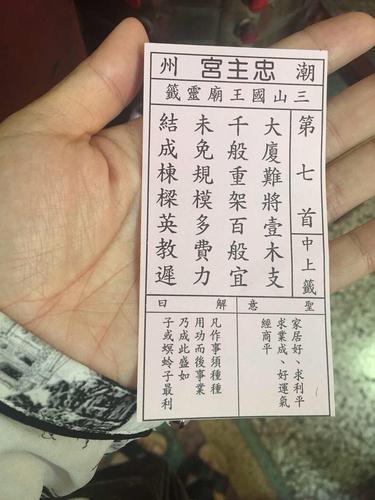 潮 忠主宮 州
三山國王廟靈籤
第七首
中上籤
大廈難將壹木支
千般重架百般宜
未免規模多費力
結成棟樑英教遲
聖意
家居好、求利平
求業成、好運氣
經商平
解曰
凡作事須種種
用功而後事業
乃成此盛如
子或螟蛉子最利